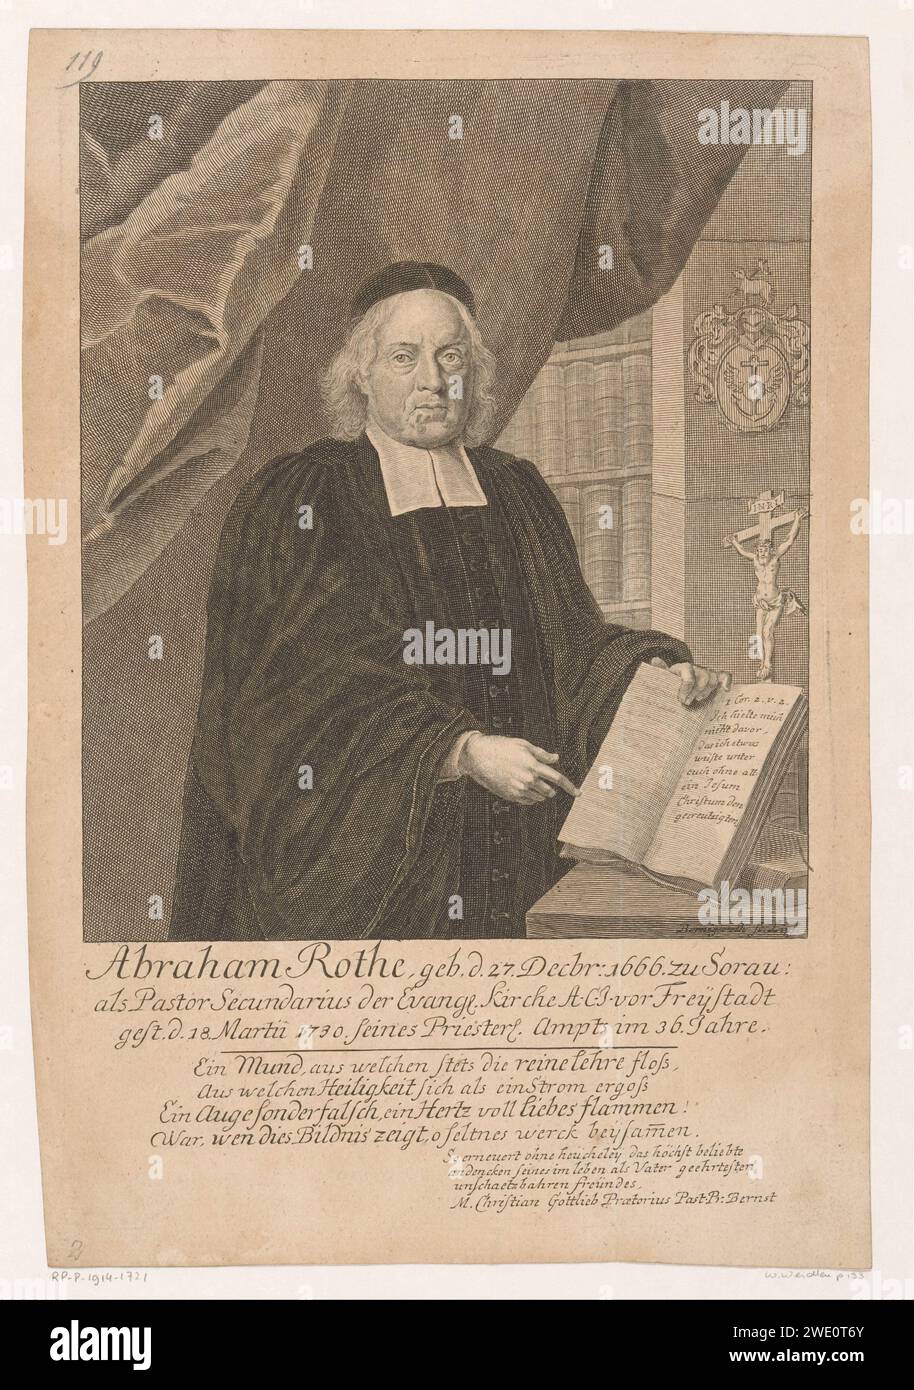 119
INRI
1 Cor. 2. v. 2.
Ich hielte mich
nicht davor,
das ich etwas
wüste unter
euch ohne all-
ein Jesum
Christum den
gecreutzigten,
Abraham Rothe, geb. d. 27. Decbr: 1666. zu Sorau:
als Pastor Secundarius der Evangl. Kirche A.C.I. vor Freÿstadt
gest. d. 18. Martii 1730. seines Priesterl. Ampts im 36. Jahre.
Ein Mund, aus welchen stets die reine lehre floss,
Aus welchen Heiligkeit sich als ein Strom ergoss
Ein Auge sonder falsch, ein Hertz voll liebes flammen!
War, wen dies Bildnis zeigt, o seltnes werck beysam̄en.
So erneuert ohne heucheley das höchst beliebte
andencken seines im leben als Vater geehrtesten
unschaetzbahren freundes,
M. Christian Gottlieb Prætorius Past. Pr: Bernst
2
RP-P-1914-1721
p 133
alamy
alamy
alamy
Image ID: 2WE0T6Y
www.alamy.com